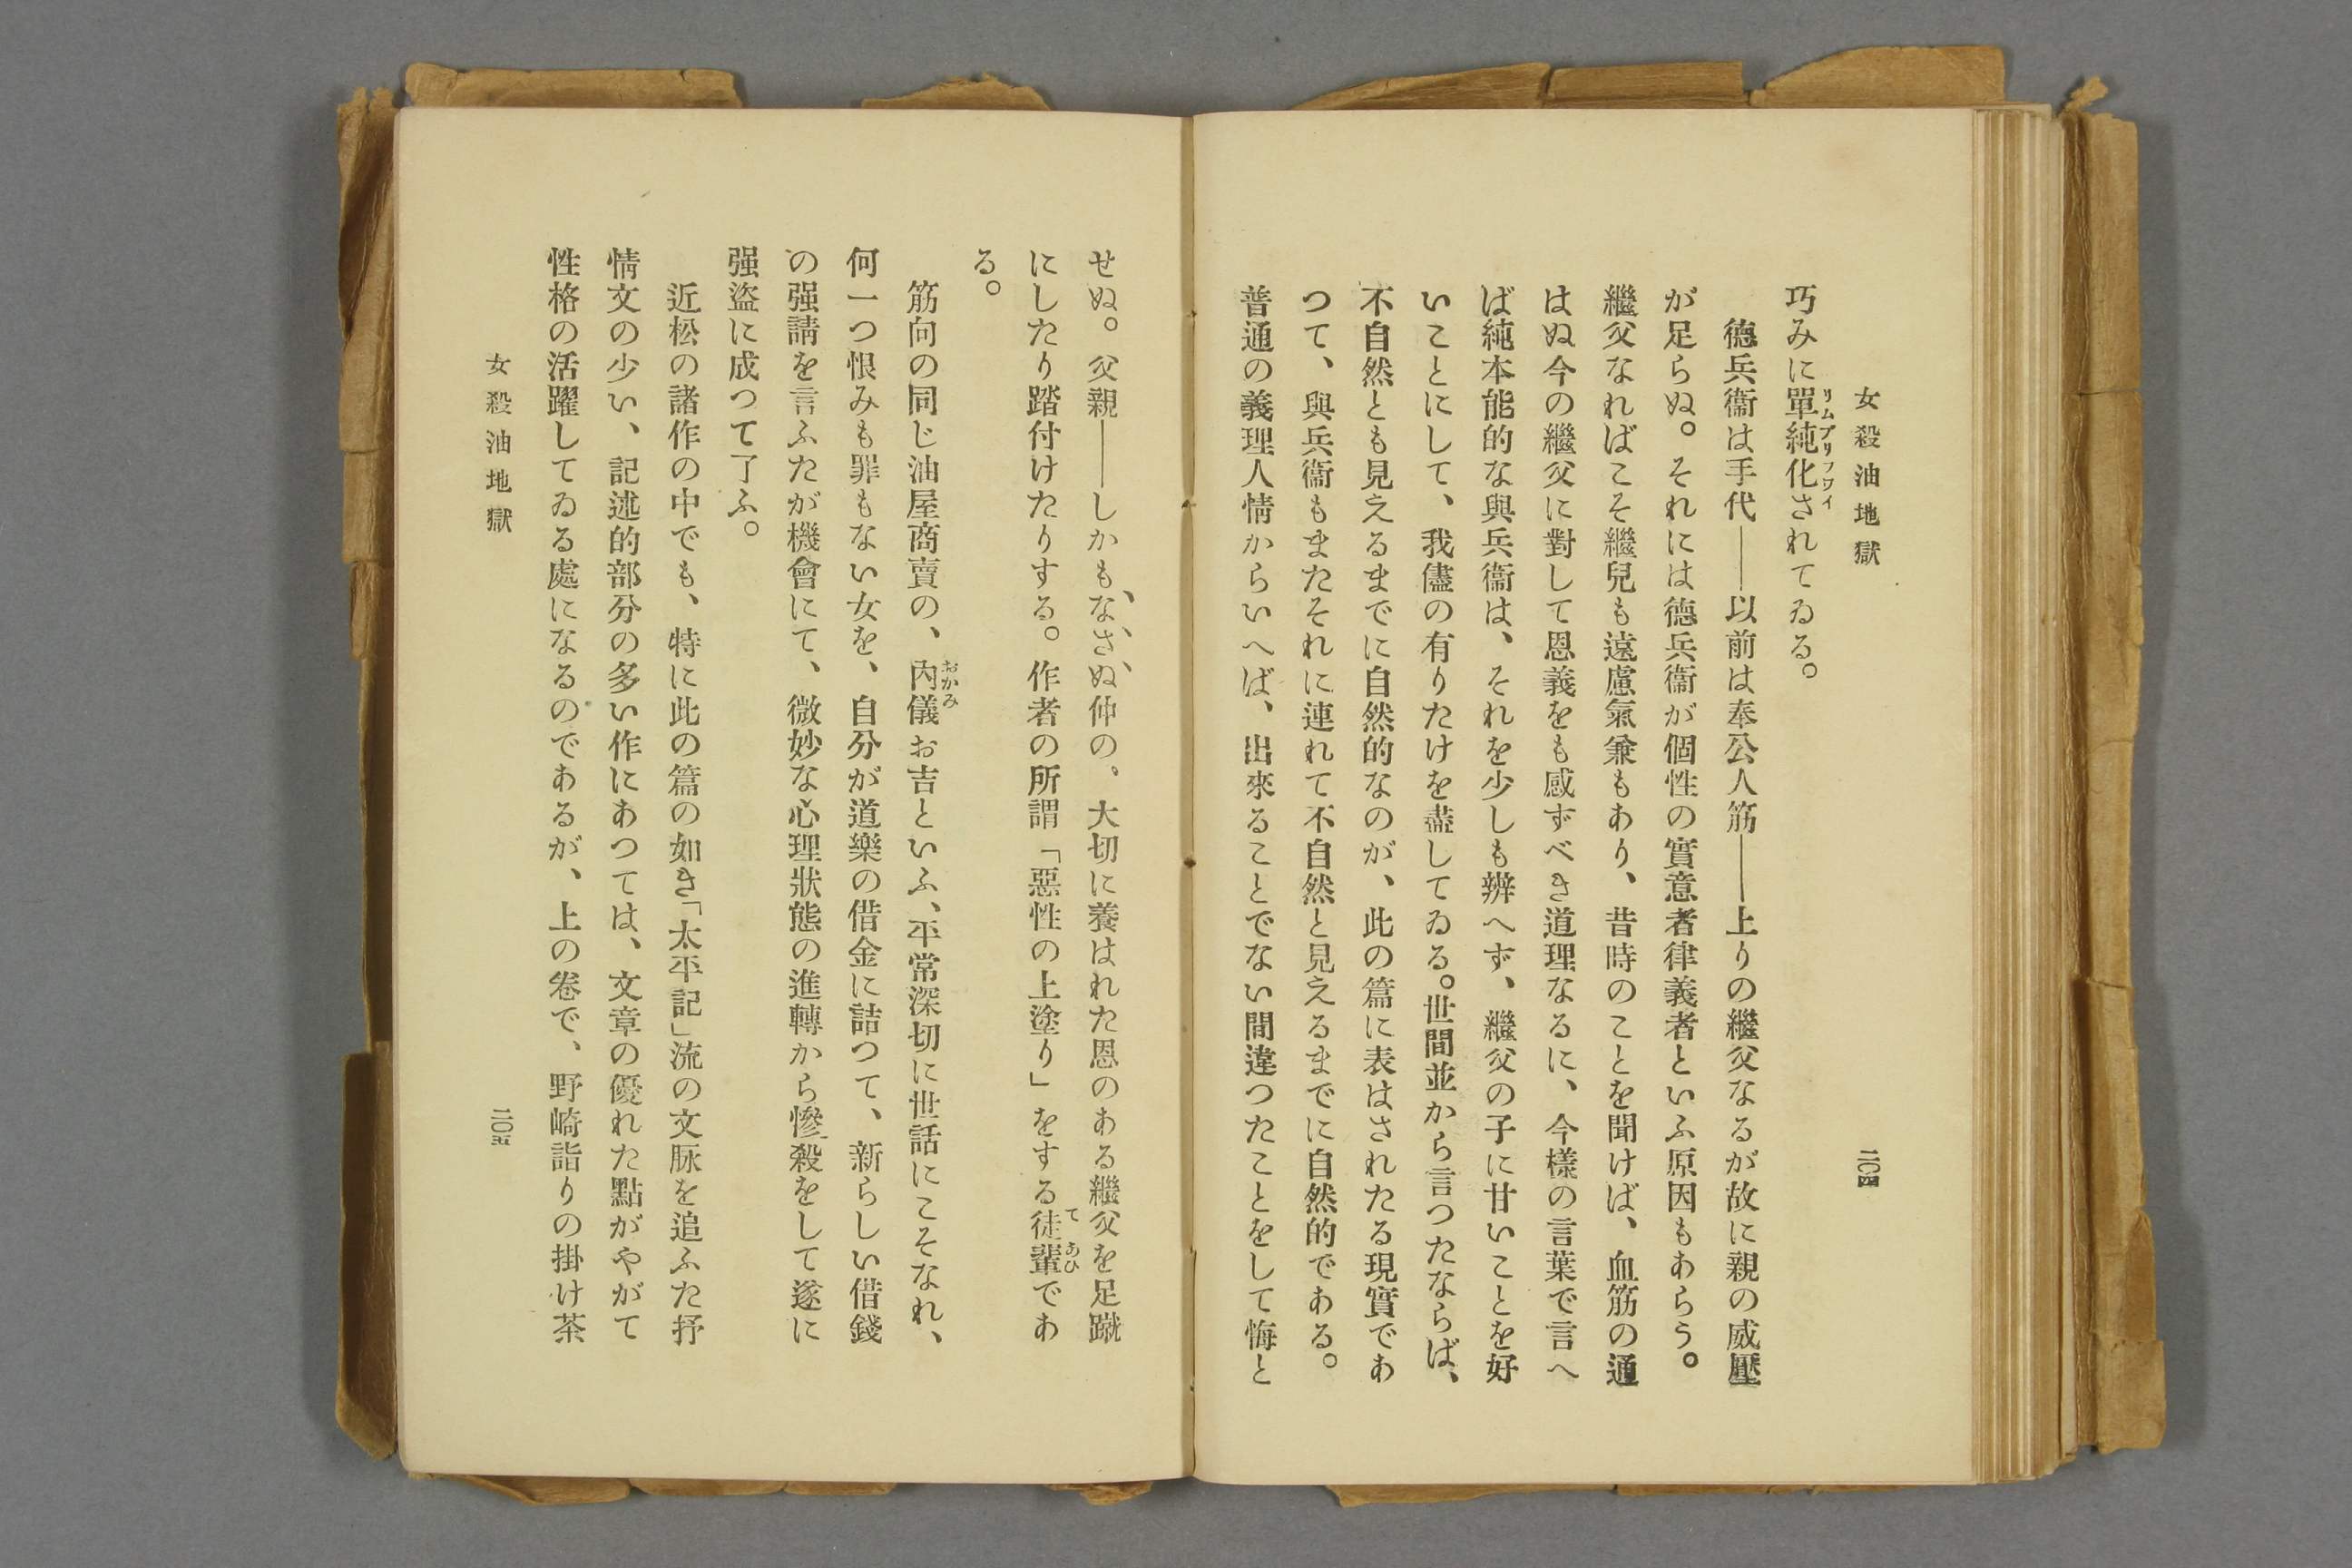 女殺油地獄
二〇四
巧みに單純化されてゐる。
リムプリフワイ
德兵衞は手代――以前は奉公人筋――上りの繼父なるが故に親の威壓
が足らぬ。それには德兵衞が個性の實意者律義者といふ原因もあらう。
繼父なればこそ繼兒も遠慮氣兼もあり、昔時のことを聞けば、血筋の通
はぬ今の繼父に對して恩義をも感ずべき道理なるに、今樣の言葉で言へ
ば純本能的な與兵衞は、それを少しも辨へず、繼父の子に甘いことを好
いことにして、我儘の有りたけを盡してゐる。世間並から言つたならば、
不自然とも見えるまでに自然的なのが、此の篇に表はされたる現實であ
つて、與兵衞もまたそれに連れて不自然と見えるまでに自然的である。
普通の義理人情からいへば、出來ることでない間違つたことをして悔と
せぬ。父親――しかも、なさぬ仲の、大切に養はれた恩のある繼父を足蹴
にしたり踏付けたりする。作者の所謂「惡性の上塗り」をする徒輩であ
てあひ
る。
筋向の同じ油屋商賣の、內儀お吉といふ、平常深切に世話にこそなれ、
おかみ
何一つ恨みも罪もない女を、自分が道樂の借金に詰つて、新らしい借錢
の强請を言ふたが機會にて、微妙な心理狀態の進轉から慘殺をして遂に
强盜に成つて了ふ。
近松の諸作の中でも、特に此の篇の如き「太平記」流の文脉を追ふた抒
情文の少い、記述的部分の多い作にあつては、文章の優れた點がやがて
性格の活躍してゐる處になるのであるが、上の卷で、野崎詣りの掛け茶
女殺油地獄
二〇五